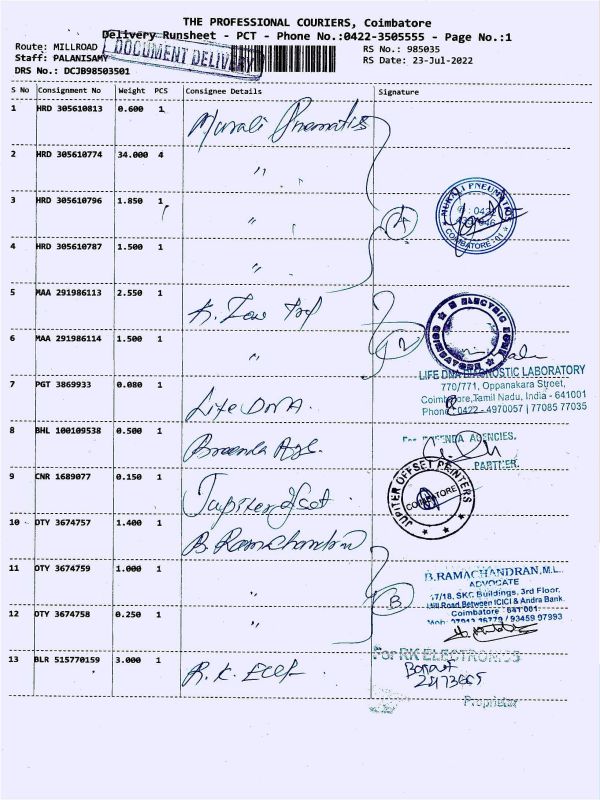 THE PROFESSIONAL COURIERS, Coimbatore
Delivery Runsheet - PCT - Phone No.:0422-3505555 - Page No.:1
Route: MILLROAD
RS No.: 985035
Staff: PALANISAMY
DOCUMENT DELIVERY
RS Date: 23-Jul-2022
DRS No.: DCJB98503501
S No Consignment No Weight PCS Consignee Details Signature
1 HRD 305610813 0.600 1 Murali Pneumatics
2 HRD 305610774 34.000 4 "
3 HRD 305610796 1.850 1 "
MURALI PNEUMATICS
COIMBATORE - 01
4 HRD 305610787 1.500 1 "
5 MAA 291986113 2.550 1
ELECTRIC ZONE
COIMBATORE
6 MAA 291986114 1.500 1 "
LIFE DNA DIAGNOSTIC LABORATORY
770/771, Oppanakara Street,
Coimbatore,Tamil Nadu, India - 641001
Phone: 0422 - 4970057 | 77085 77035
7 PGT 3869933 0.080 1 Life DNA.
8 BHL 100109538 0.500 1
AGENCIES.
PARTNER.
9 CNR 1689077 0.150 1 Jupiter Offset
JUPITER OFFSET PRINTERS
COIMBATORE
10 OTY 3674757 1.400 1 B. Ramachandran
11 OTY 3674759 1.000 1 "
B
B.RAMACHANDRAN,M.L.
ADVOCATE
17/18, SKC Buildings, 3rd Floor,
Mill Road Between ICICI & Andra Bank
Coimbatore - 641 001
12 OTY 3674758 0.250 1 "
93459 07993
13 BLR 515770159 3.000 1 R.K. Elect
For RK ELECTRONICS
Proprietor